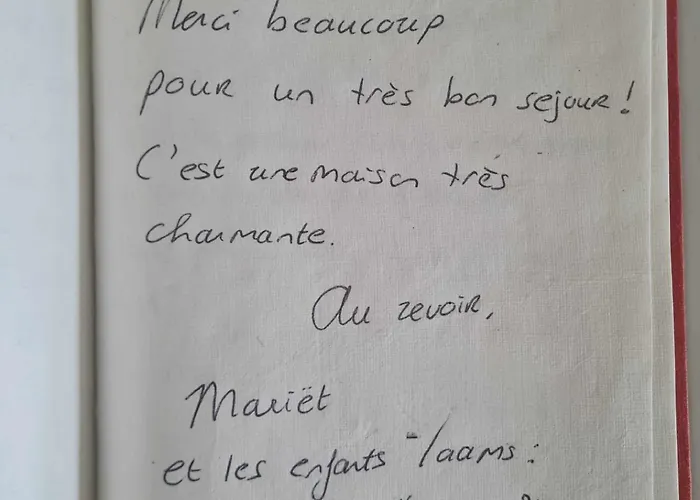 Merci beaucoup
pour un très bon sejour!
C'est une maison très
charmante.
Au revoir,
Mariët
et les enfants